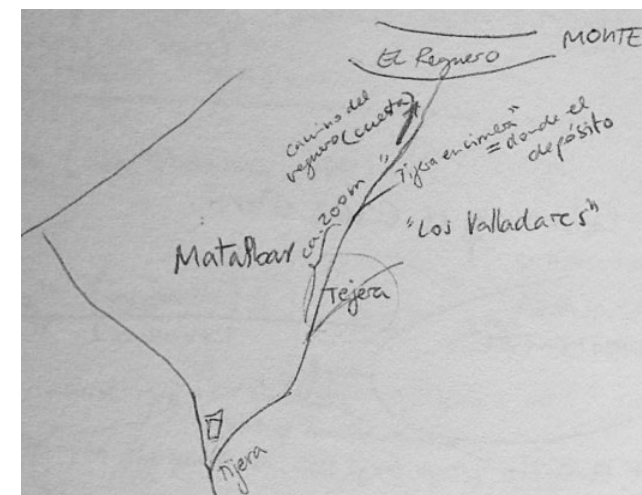 MONTE
El Reguero
camino del
reguero (cuesta)
"Tijera encimera"
= donde el
depósito
ca. 200m
"Los Valladares"
Tejera
Tijera